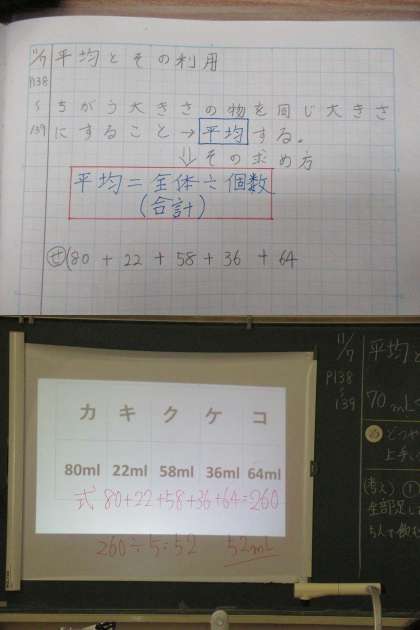 11/7 平均とその利用
P138
〜 ちがう大きさの物を同じ大きさ
139 にすること→平均する。
⇓その求め方
平均=全体÷個数
(合計)
㋝(80 + 22 + 58 + 36 + 64
カ キ ク ケ コ
80ml 22ml 58ml 36ml 64ml
式 80+22+58+36+64=260
260÷5=52 52mL
11/7 平均と
P138
〜
139 70mL
め どうや
上手し
(考え) ①
全部足し